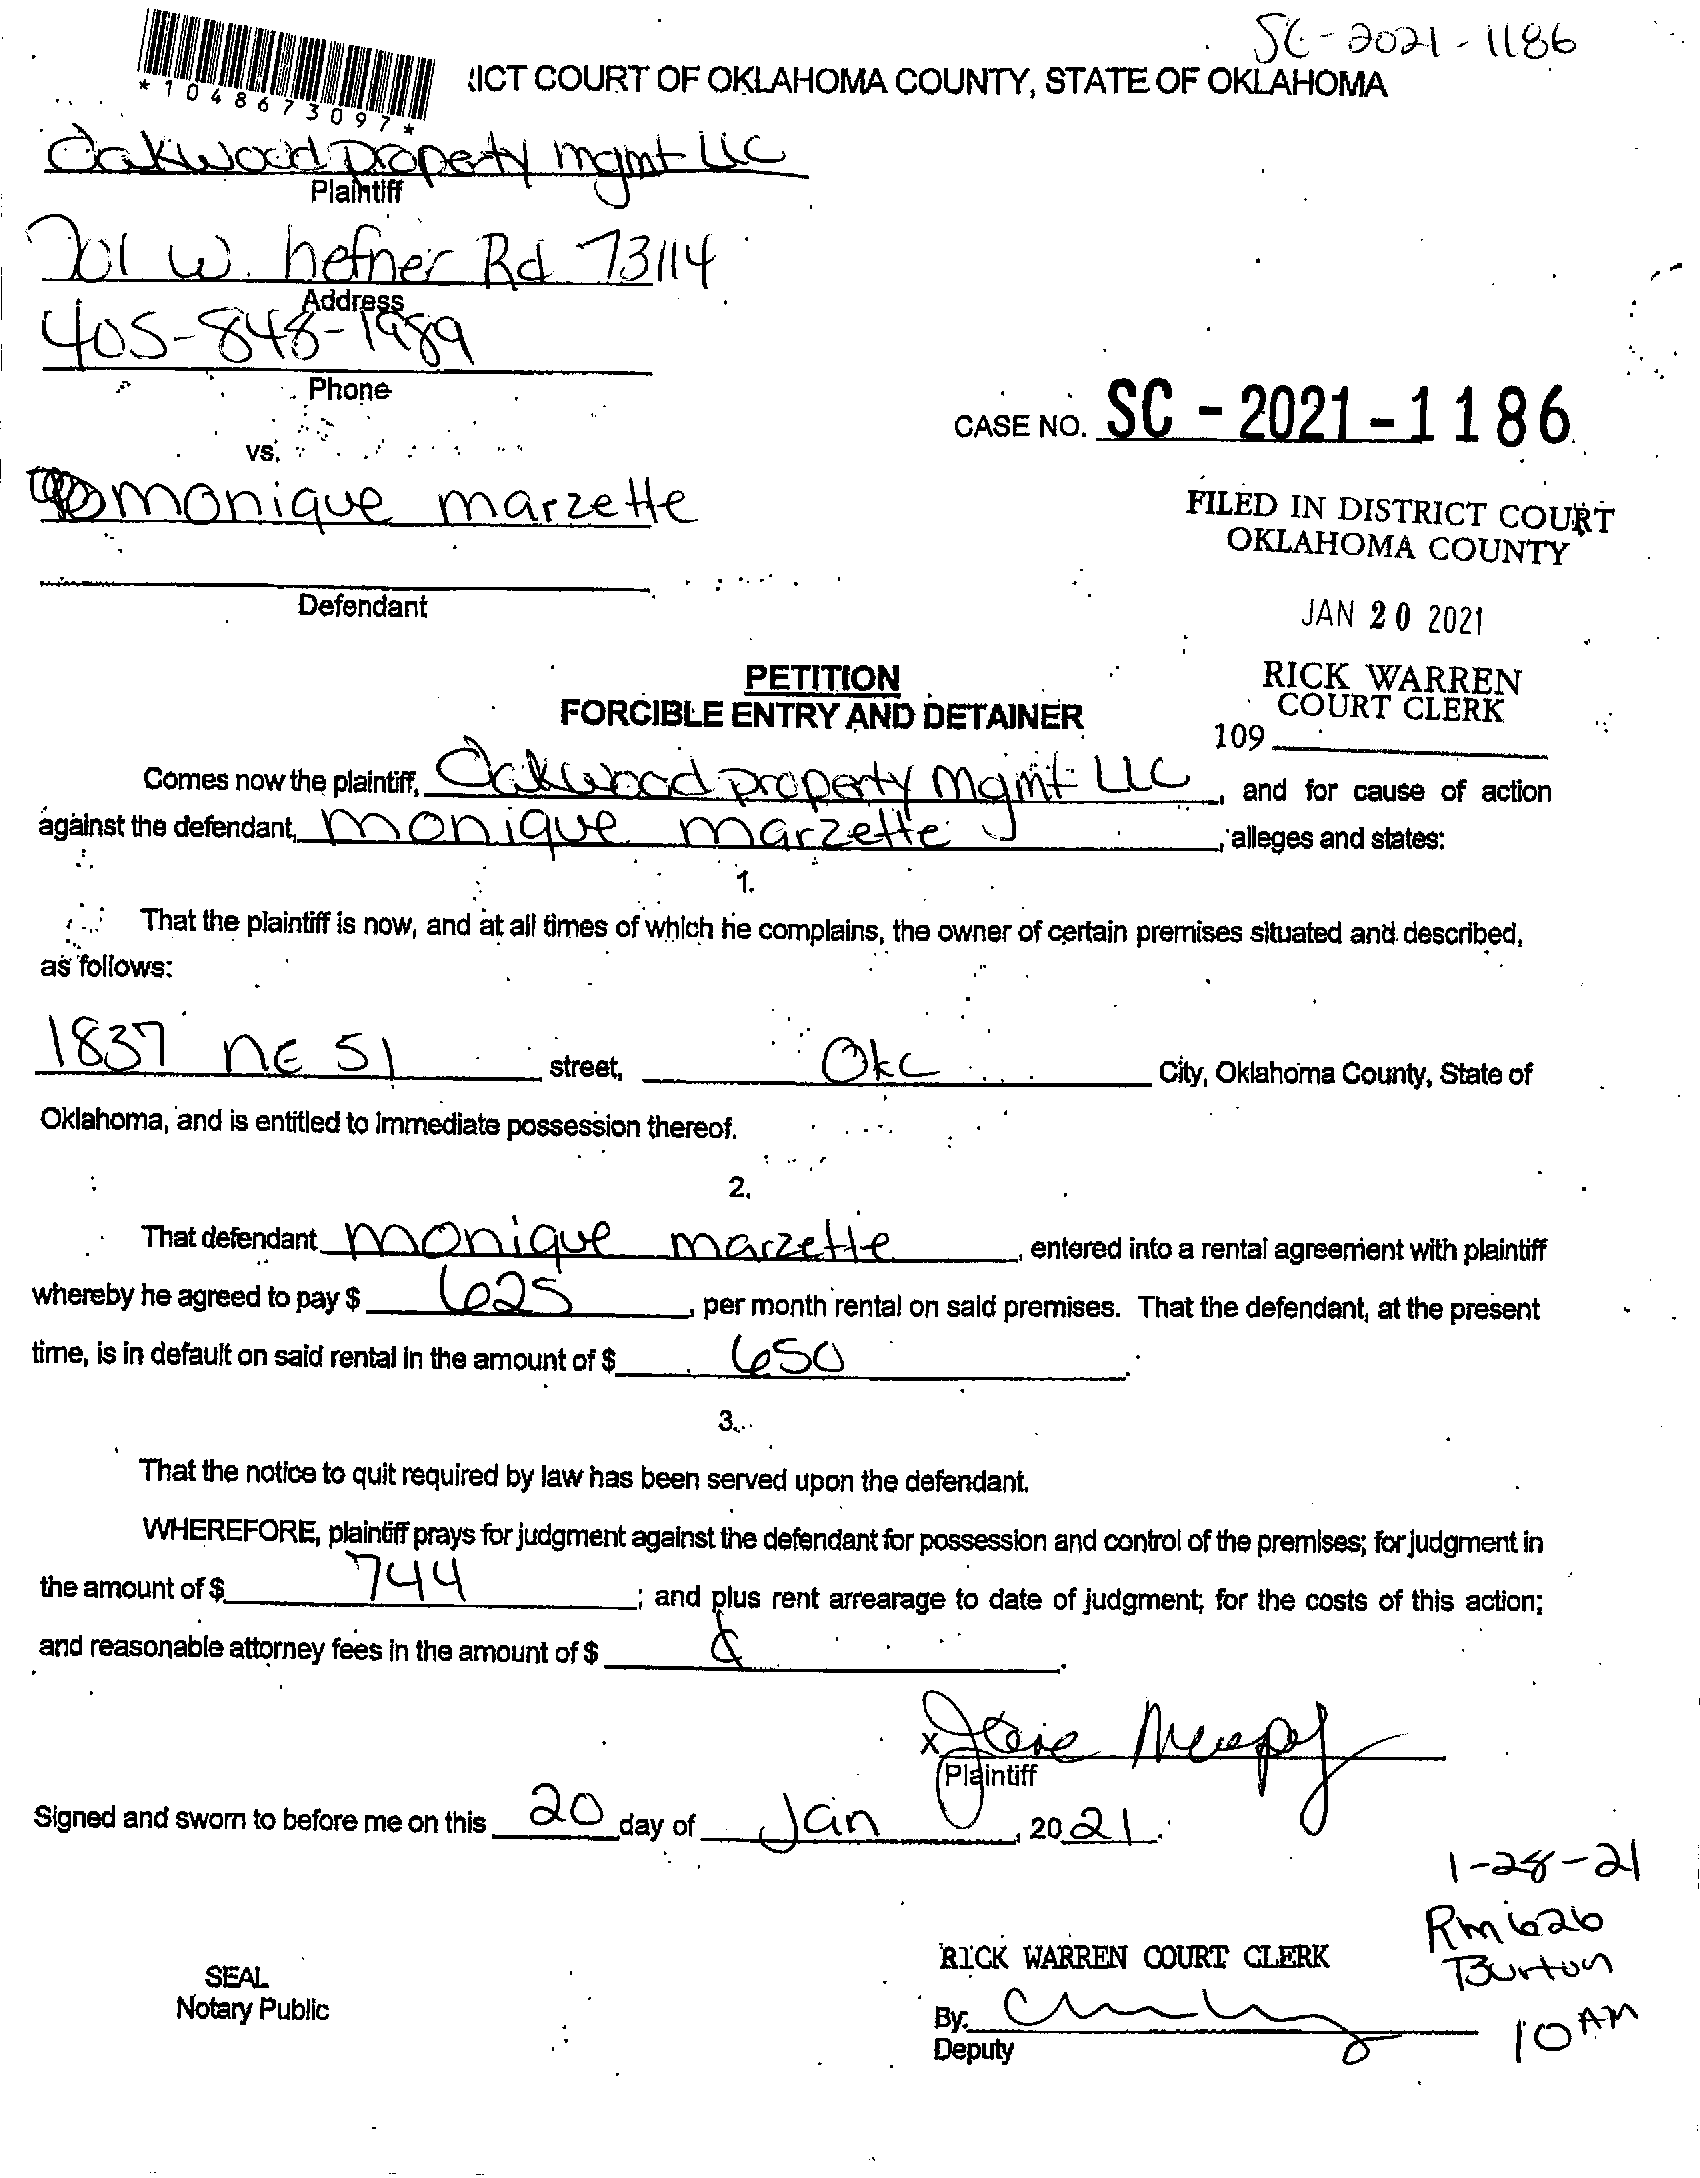 SC-2021-1186
*1048673097*
ICT COURT OF OKLAHOMA COUNTY, STATE OF OKLAHOMA
Oakwood property mgmt LLC
Plaintiff
701 W. hefner Rd 73114
Address
405-848-1989
Phone
CASE NO. SC - 2021 - 1186
vs.
monique marzette
FILED IN DISTRICT COURT
OKLAHOMA COUNTY
Defendant
JAN 20 2021
PETITION
FORCIBLE ENTRY AND DETAINER
RICK WARREN
COURT CLERK
109
Comes now the plaintiff, Oakwood property Mgmt LLC, and for cause of action
against the defendant, monique marzette, alleges and states:
1.
That the plaintiff is now, and at all times of which he complains, the owner of certain premises situated and described,
as follows:
1837 NE 51 street, Okc City, Oklahoma County, State of
Oklahoma, and is entitled to immediate possession thereof.
2.
That defendant monique marzette, entered into a rental agreement with plaintiff
whereby he agreed to pay $ 625, per month rental on said premises. That the defendant, at the present
time, is in default on said rental in the amount of $ 650.
3.
That the notice to quit required by law has been served upon the defendant.
WHEREFORE, plaintiff prays for judgment against the defendant for possession and control of the premises; for judgment in
the amount of $ 744; and plus rent arrearage to date of judgment; for the costs of this action;
and reasonable attorney fees in the amount of $
X
Plaintiff
Signed and sworn to before me on this 20 day of Jan, 2021.
1-28-21
Rm 626
Burton
10 AM
RICK WARREN COURT CLERK
SEAL
Notary Public
By:
Deputy